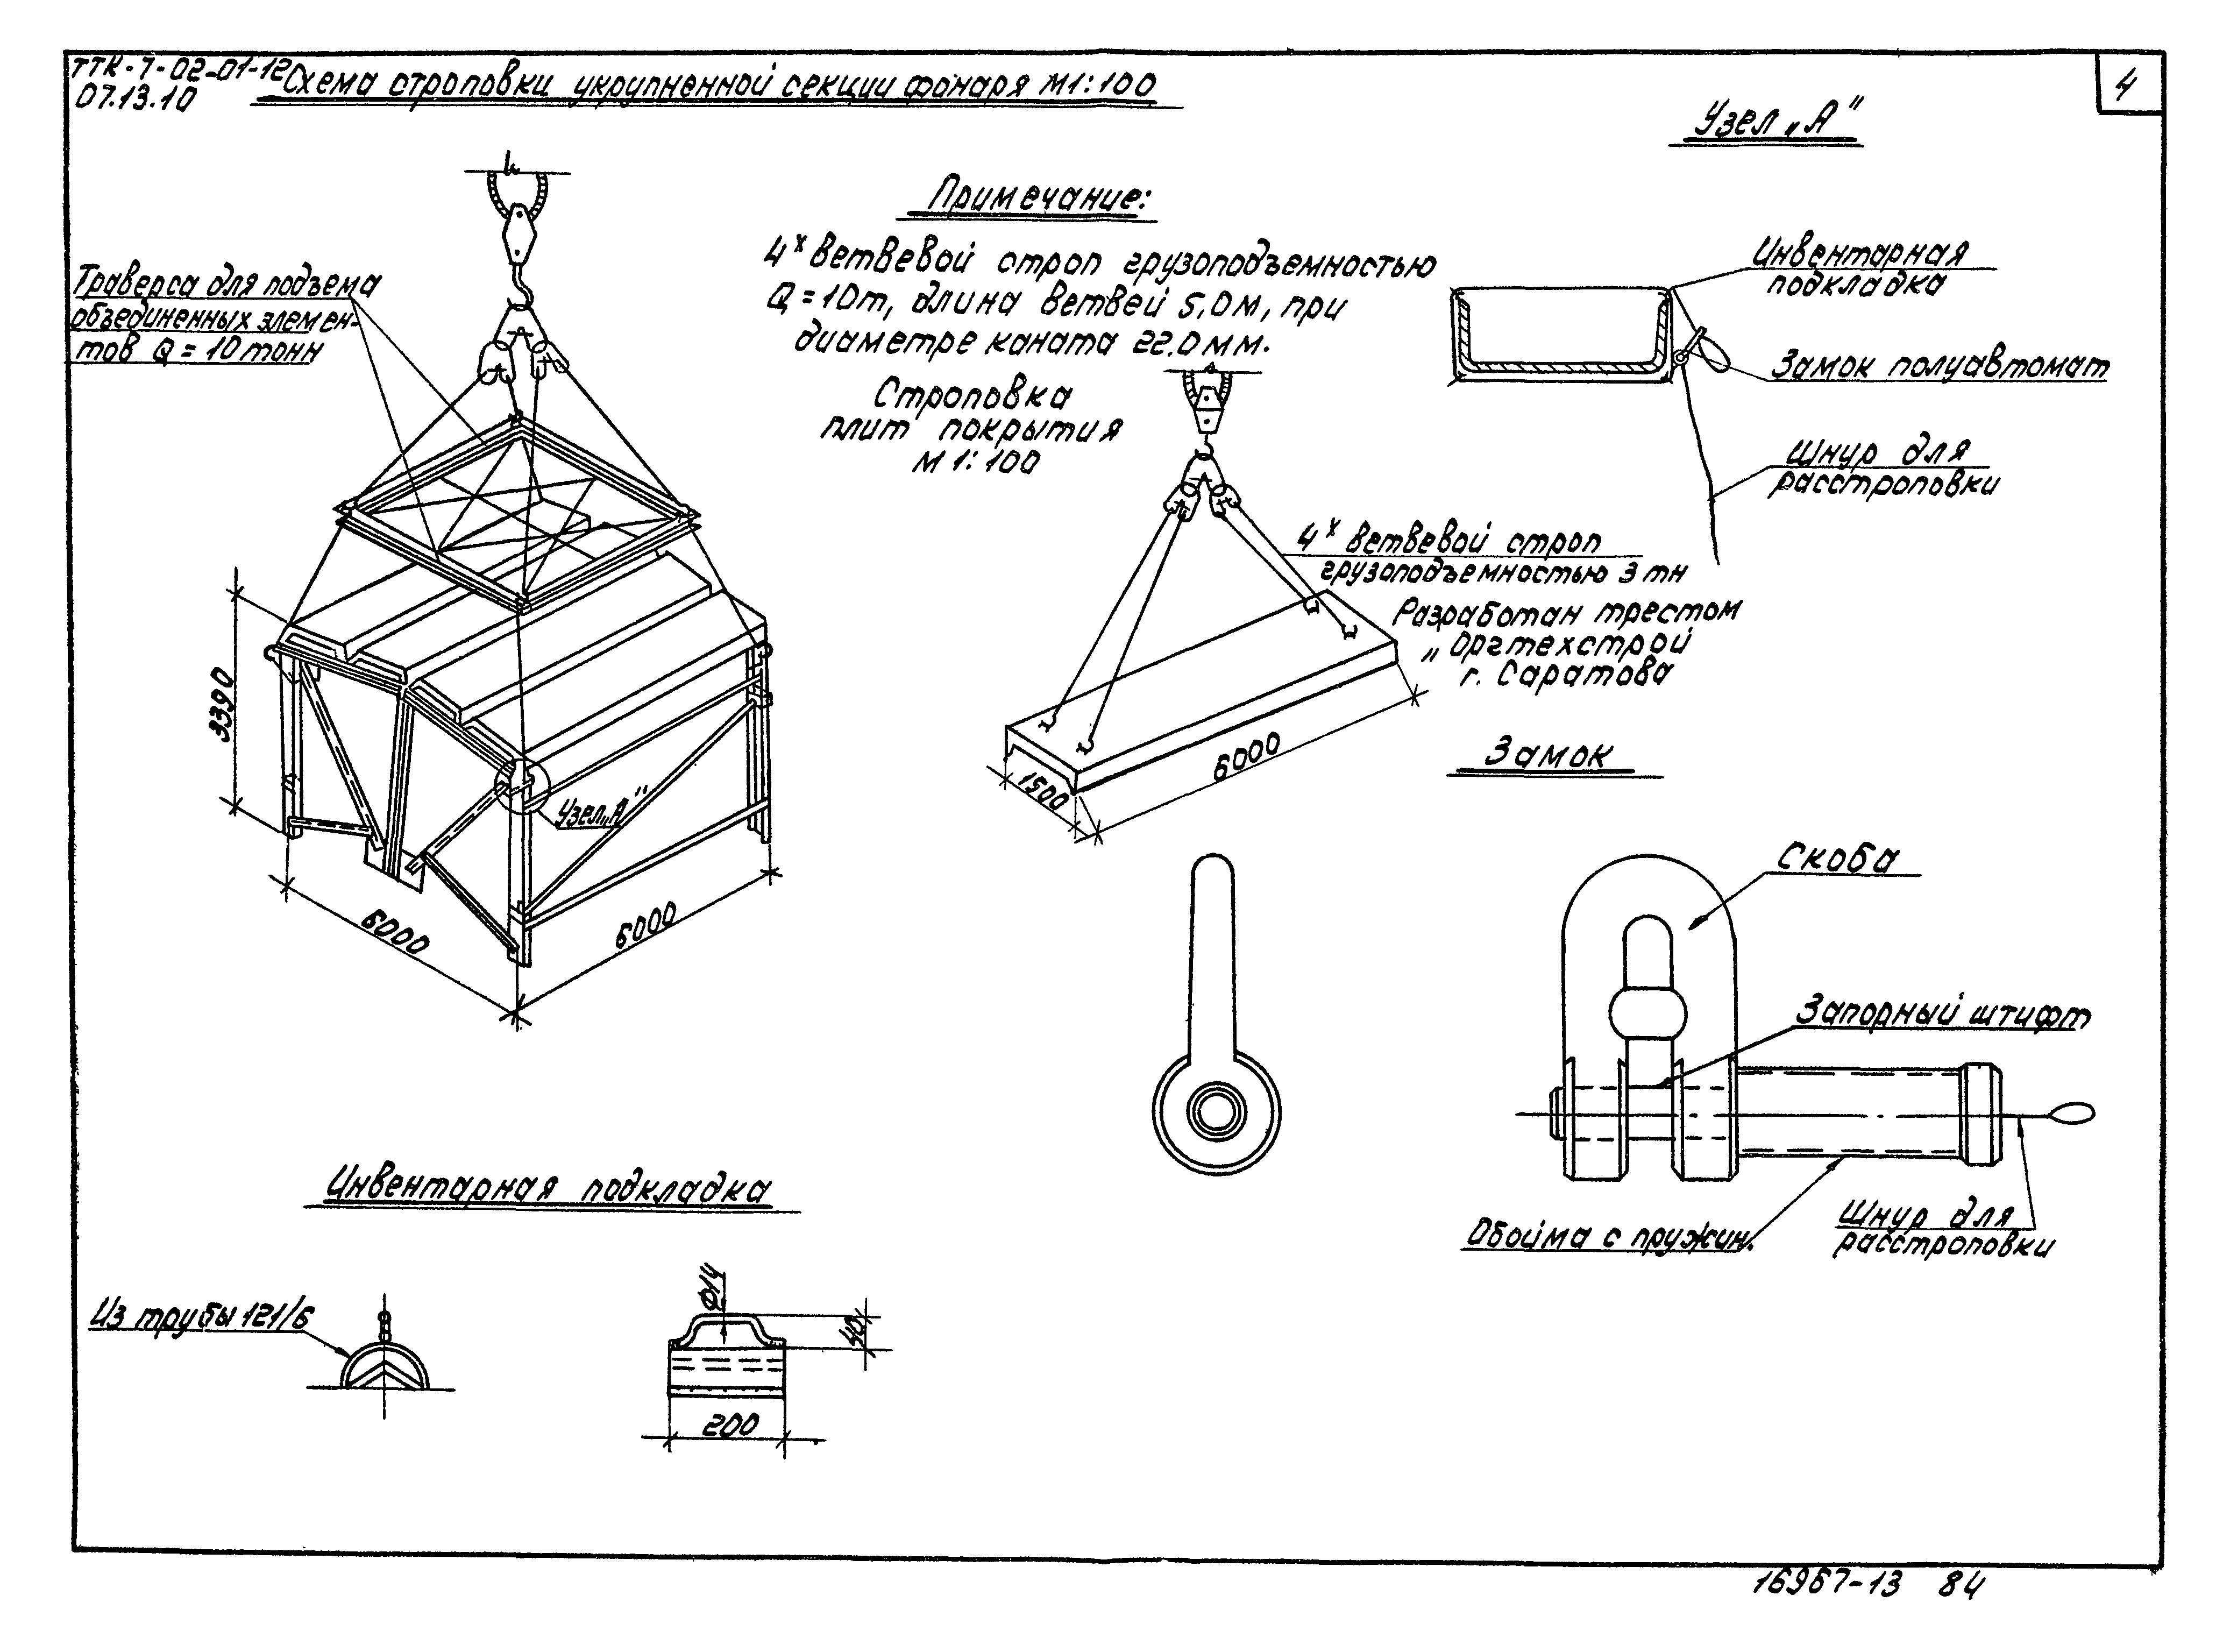 ТТК-7-02-01-12
07.13.10
Схема строповки укрупненной секции фонаря М1:100
4
Узел „А"
Примечание:
4х ветвевой строп грузоподъемностью
Q = 10т, длина ветвей 5,0м, при
диаметре каната 22.0мм.
Траверса для подъема
объединенных элемен-
тов Q = 10 тонн
Инвентарная
подкладка
Замок полуавтомат
Шнур для
расстроповки
Строповка
плит покрытия
М 1:100
4х ветвевой строп
грузоподъемностью 3 тн
Разработан трестом
„Оргтехстрой
г. Саратова
3390
6000
6000
Узел „А"
1500
6000
Замок
Скоба
Запорный штифт
Обойма с пружин.
Шнур для
расстроповки
Инвентарная подкладка
Из трубы 121/6
Ø14
40
200
16967-13 84